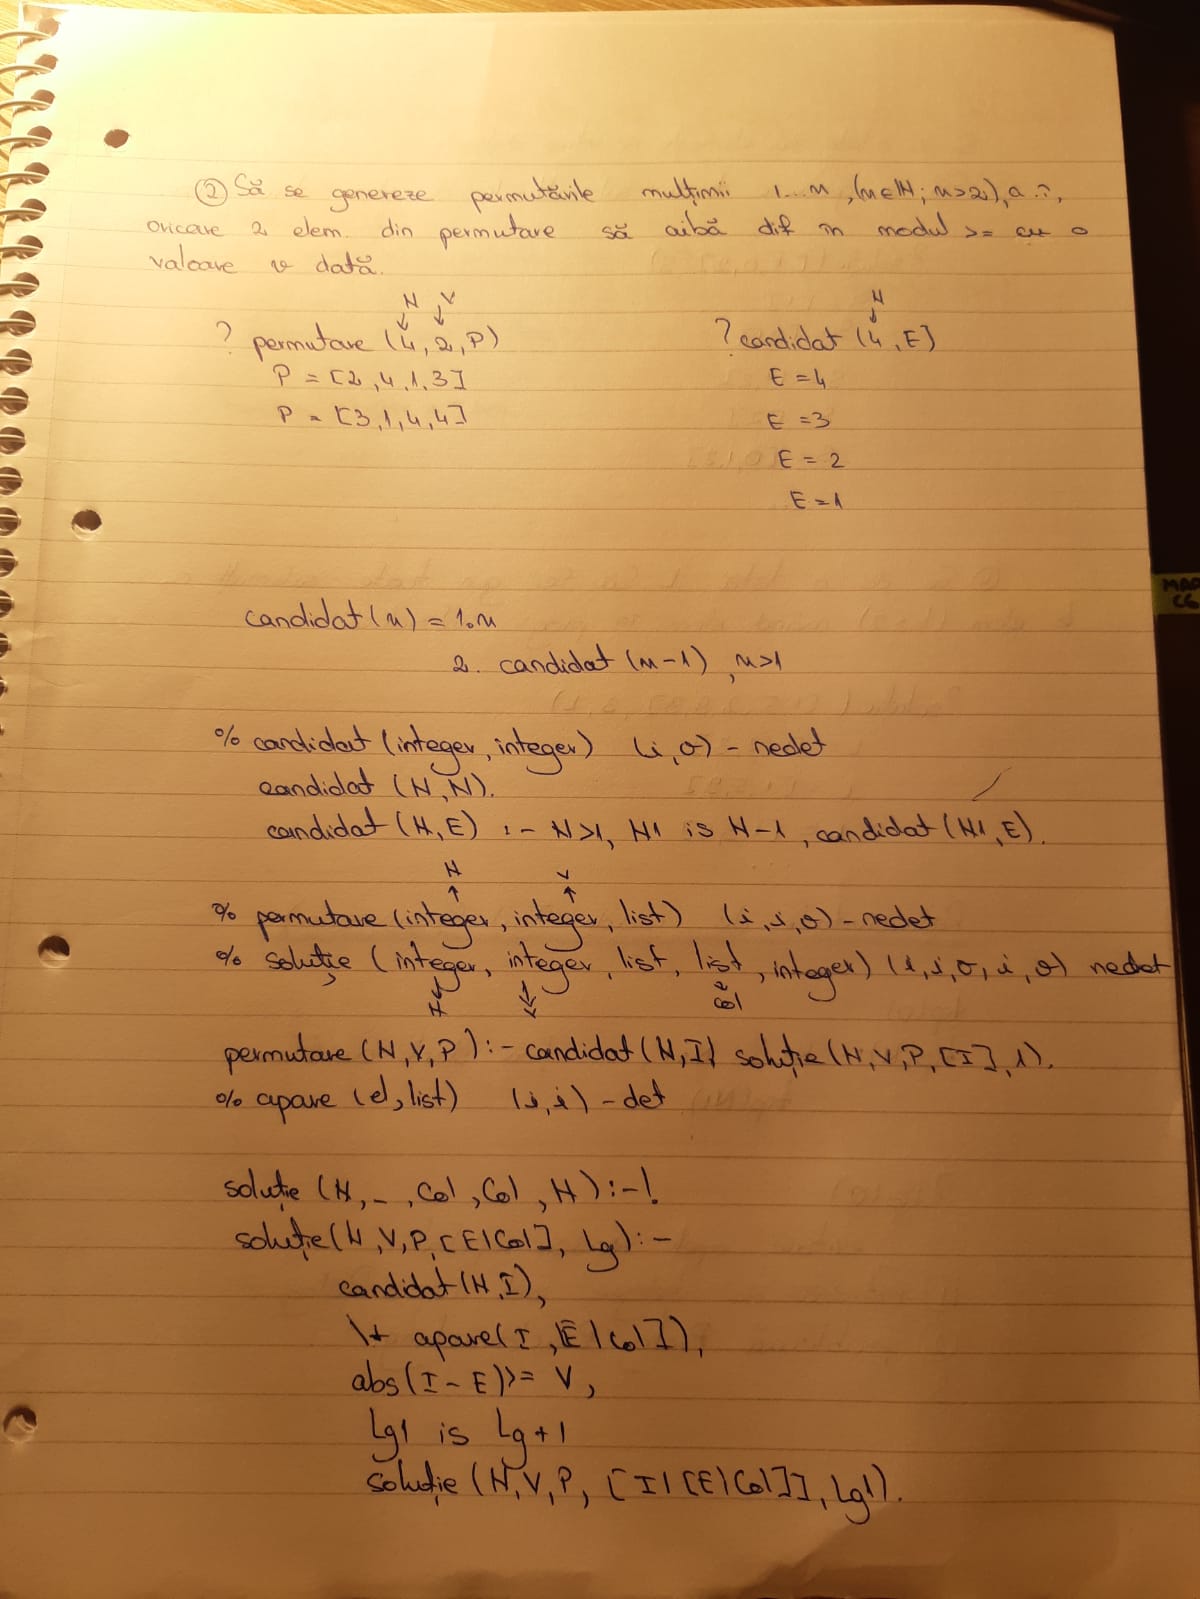 ② Să se genereze permutările mulțimii 1...n, (n∈N; n>2), a.î.,
oricare 2 elem. din permutare să aibă dif în modul >= cu o
valoare v dată.
N V
↓ ↓
? permutare (4, 2, P)
P = [2, 4, 1, 3]
P = [3, 1, 4, 4]
N
↓
? candidat (4, E]
E = 4
E = 3
E = 2
E = 1
MAR
candidat (n) = 1. n
2. candidat (n-1), n>1
% candidat (integer, integer) (i, o) - nedet
candidat (N, N).
candidat (N, E) :- N>1, N1 is N-1, candidat (N1, E).
N V
↑ ↑
% permutare (integer, integer, list) (i, i, o) - nedet
% soluție (integer, integer, list, list, integer) (i, i, o, i, o) nedet
N V Col
permutare (N, V, P) :- candidat (N, I) soluție (N, V, P, [I], 1).
% apare (el, list) (i, i) - det
soluție (N, _, Col, Col, N) :- !
soluție (N, V, P, [E|Col], Lg) :-
candidat (N, I),
\+ apare (I, [E|Col]),
abs (I - E) >= V,
Lg1 is Lg + 1
soluție (N, V, P, [I|[E|Col]], Lg1).